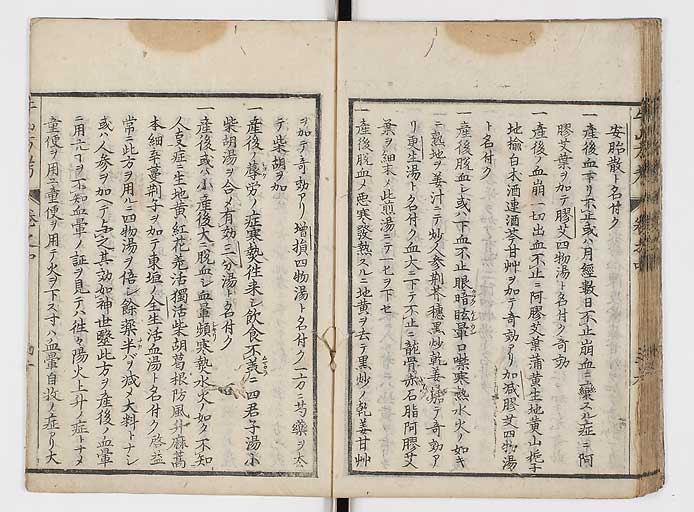 安胎散ト名付ク
一産後血下リ不止或ハ月經數日不止崩血ニ變スル症ニ阿
膠艾葉ヲ加テ膠艾四物湯ト名付ク奇効
一産後ノ血崩一切出血不止ニ阿膠艾葉蒲黄生地黄山梔子
地榆白木酒連酒芩甘艸ヲ加テ奇効アリ加減膠艾四物湯
ト名付ク
一産後脱血シ或ハ下血不止眼暗眩暈口噤寒熱水火ノ如キ
ニ熟地ヲ姜汁ニテ炒人参荊芥穂黒炒乾姜ヲ加テ奇効ア
リ更生湯ト名付ク血大ニ下テ不止ニ龍骨赤石脂阿膠艾
葉ヲ細末〆此煎湯ニテ一匕ヲ下セ
一産後脱血〆悪寒發熱スルニ地黄ヲ去テ黒炒ノ乾姜甘艸
ヲ加テ奇効アリ増損四物湯ト名付ク一方ニ芍藥ヲ去
テ柴胡ヲ加
一産後ノ蓐労ノ症寒熱往来シ飲食不美ニ四君子湯小
柴胡湯ヲ合〆有効三分湯ト名付ク
一産後或ハ小産後大ニ脱血シ血暈頻寒熱水火ノ如ク不知
人事症ニ生地黄紅花羗活獨活柴胡葛根防風升麻藁
本細辛蔓荊子ヲ加テ東垣ノ全生活血湯ト名付ク啓益
常ニ此方ヲ用ルニ四物湯ヲ倍シ餘藥半バヲ減〆大料トナシ
或ハ人参ヲ加ヘテ与之其効如神世醫此方ヲ産後ノ血暈
ニ用ルヿヲ不知血暈ノ証ヲ見テハ往々陽火上升ノ症トナ〆
童便ヲ用ニ童便ヲ用テ火ヲ下スヿハ血暈自汝ノ症アリ大